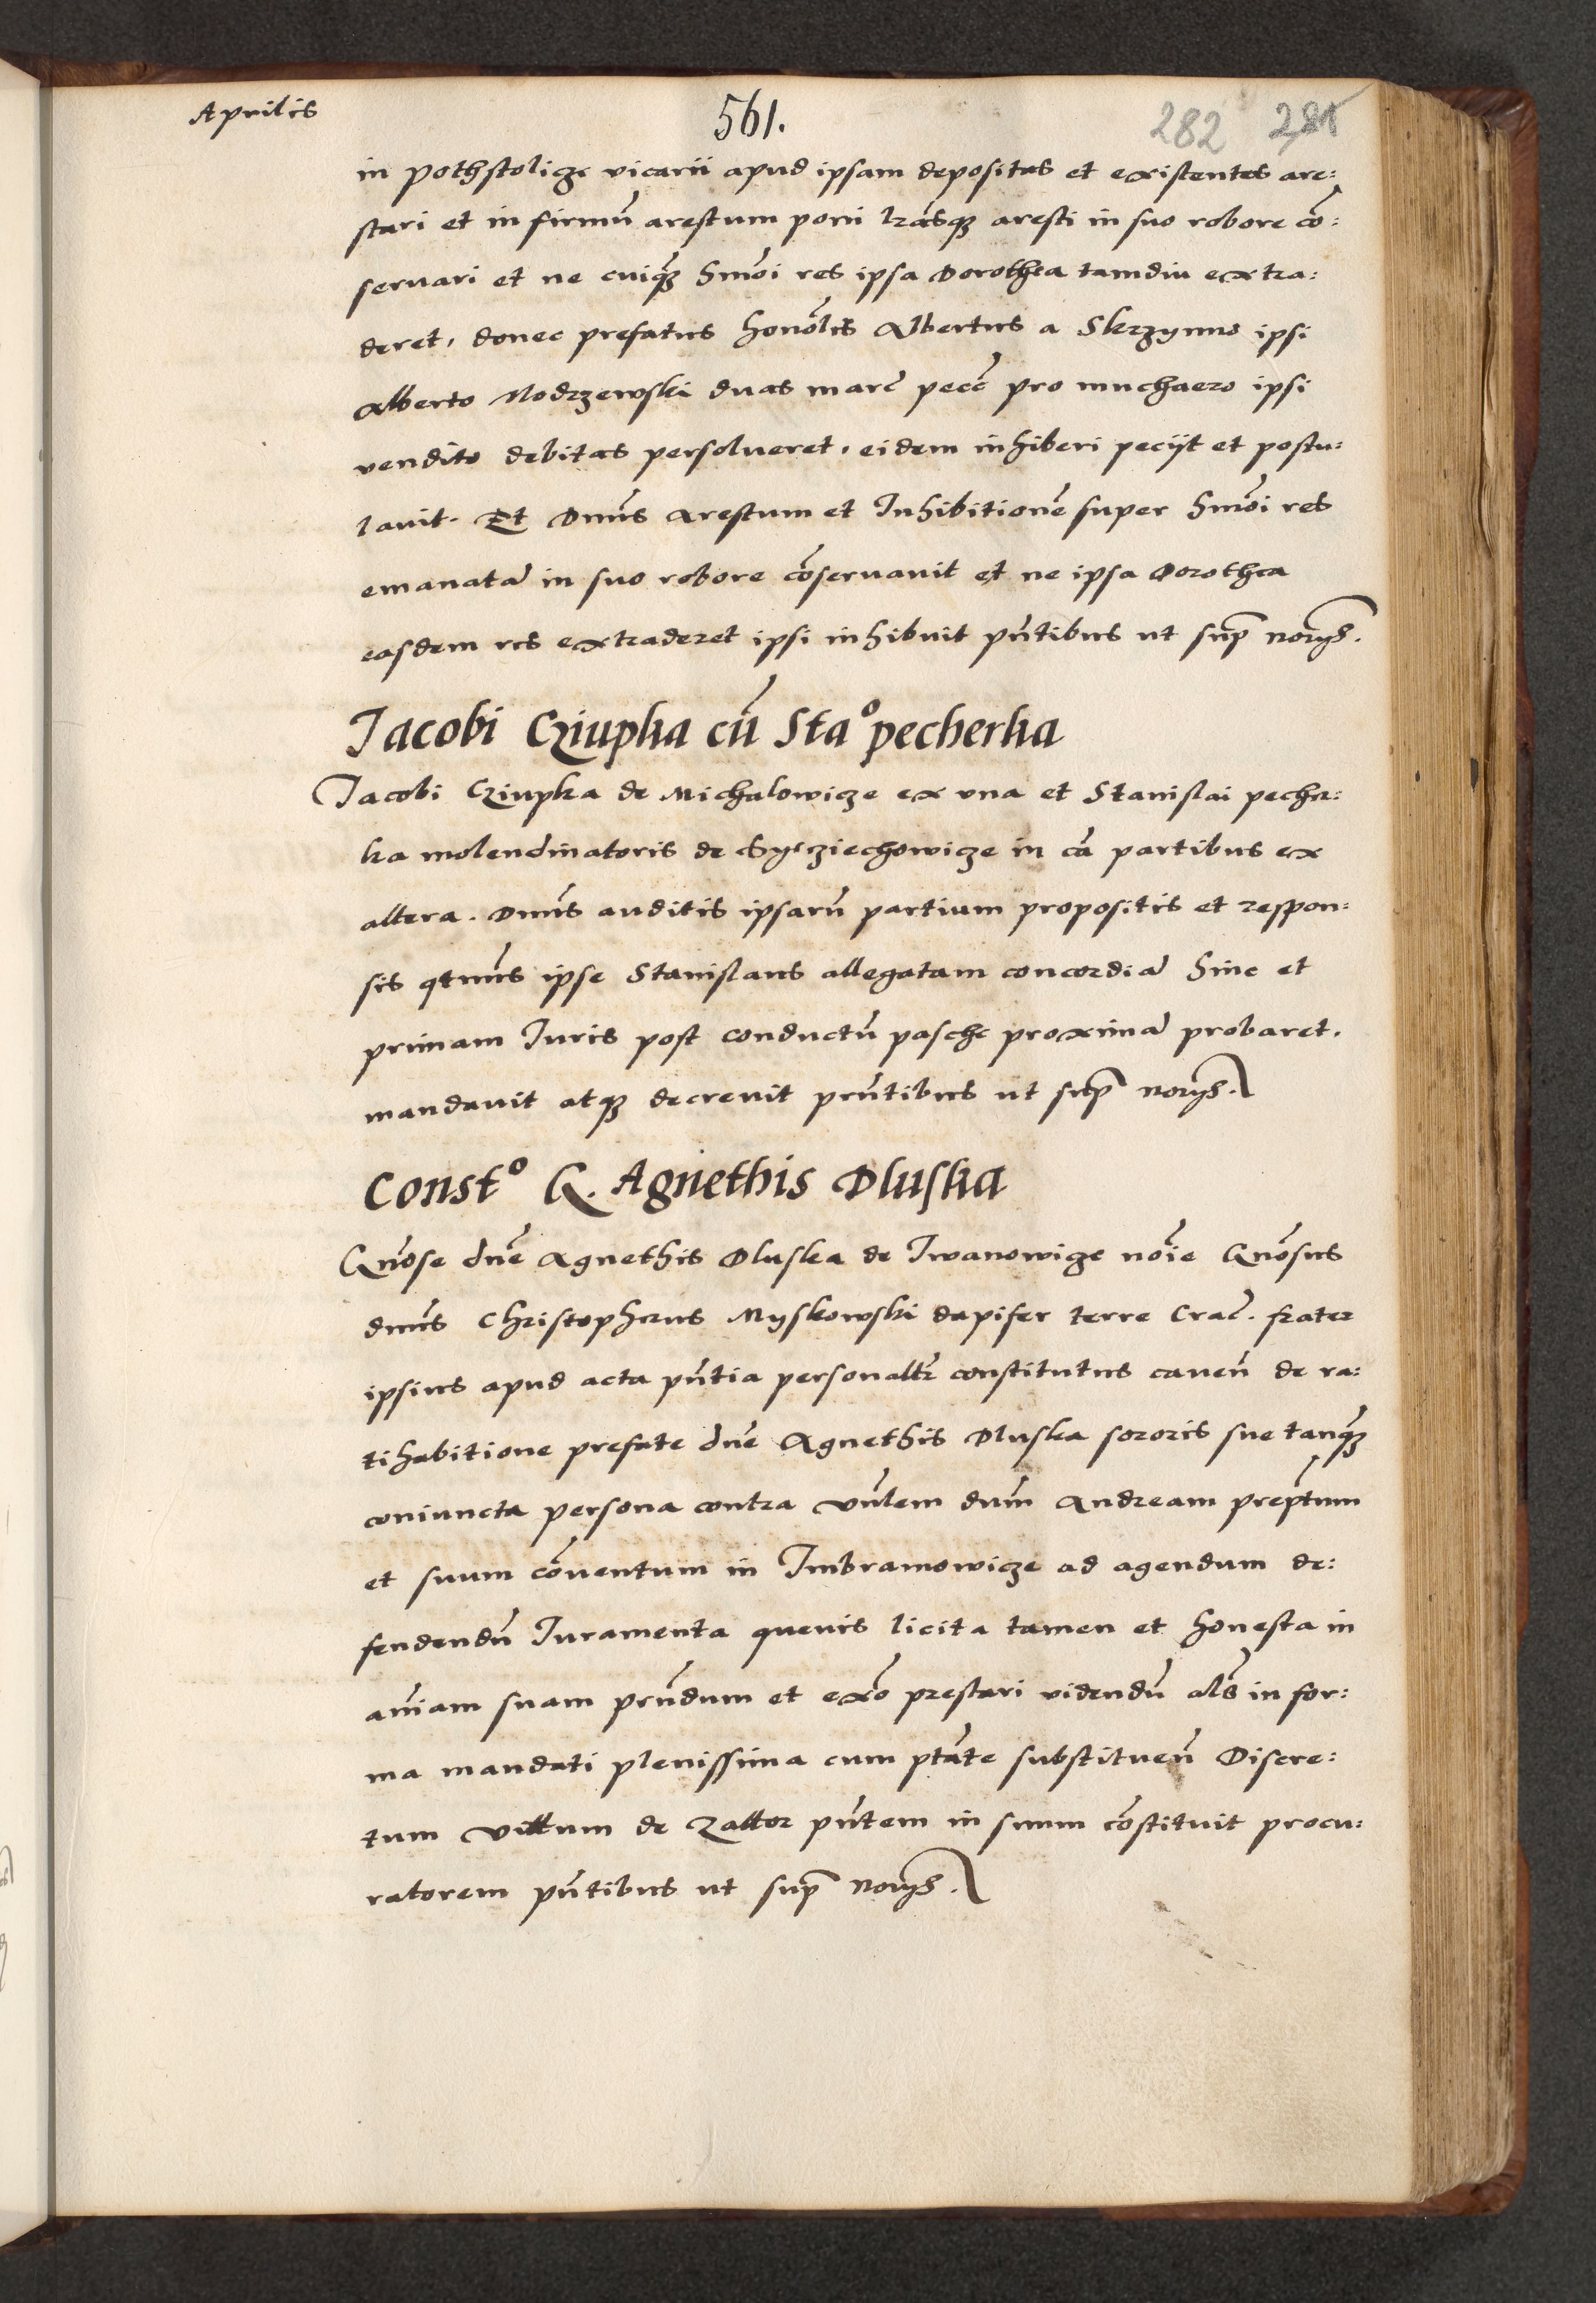 Aprilis
561.
282 281
in pothstolicze vicarii apud ipsam depositas et existentes are:
stari et in firmū arestum poni lrāsqȝ aresti in suo robore cō:
servari et ne cuiqȝ hmōi res ipsa Dorothea tamdiu extra:
deret, donec prefatus honōlis Albertus a Skrzynno ipsi
Alberto Modrzewski duas marc̄ pecc̄ pro muchaero ipsi
vendito debitas persolueret, eidem inhiberi peciit et postu:
lavit. Et Dnūs Arestum et Inhibitionē super hmōi res
emanatā in suo robore cōservavit et ne ipsa Dorothea
easdem res extraderet ipsi inhibuit pn̄tibus ut sup̄ norijs.
Jacobi Cziupka cū Sta° pecherka
Jacobi Cziupka de Michalowicze ex una et Stanislai pecher:
ka molendinatoris de Syczziechowicze in cā partibus ex
altera. Dnūs auditis ipsarū partium propositis et respon:
sis qtnūs ipse Stanislaus allegatam concordiā hinc et
primam Juris post conductū pasche proximā probaret.
mandavit atqȝ decrevit prn̄tibus ut sup̄ norijs.
Const° G. Agnethis Dluska
Gn̄ose dn̄e Agnethis Dluska de Iwanowicze nōie Gn̄osus
dnūs Christopherus Myskowski dapifer terre Crac̄. frater
ipsius apud acta pn̄tia personaltr̄ constitutus caven̄ de ra:
tihabitione prefate dn̄e Agnethis Dluska sororis sue tanqȝ
coniuncta persona contra Vn̄lem dnm̄ Andream prepn̄tum
et suum cōventum in Imbramowicze ad agendum de:
fendendū Juramenta quevis licita tamen et honesta in
an̄iam suam prn̄dum et exō prestari videndū als̄ in for:
ma mandati plenissima cum ptāte substituen̄ Discre:
tum Vittum de Zattor pn̄tem in suum cōstituit procu:
ratorem pn̄tibus ut sup̄ norijs.